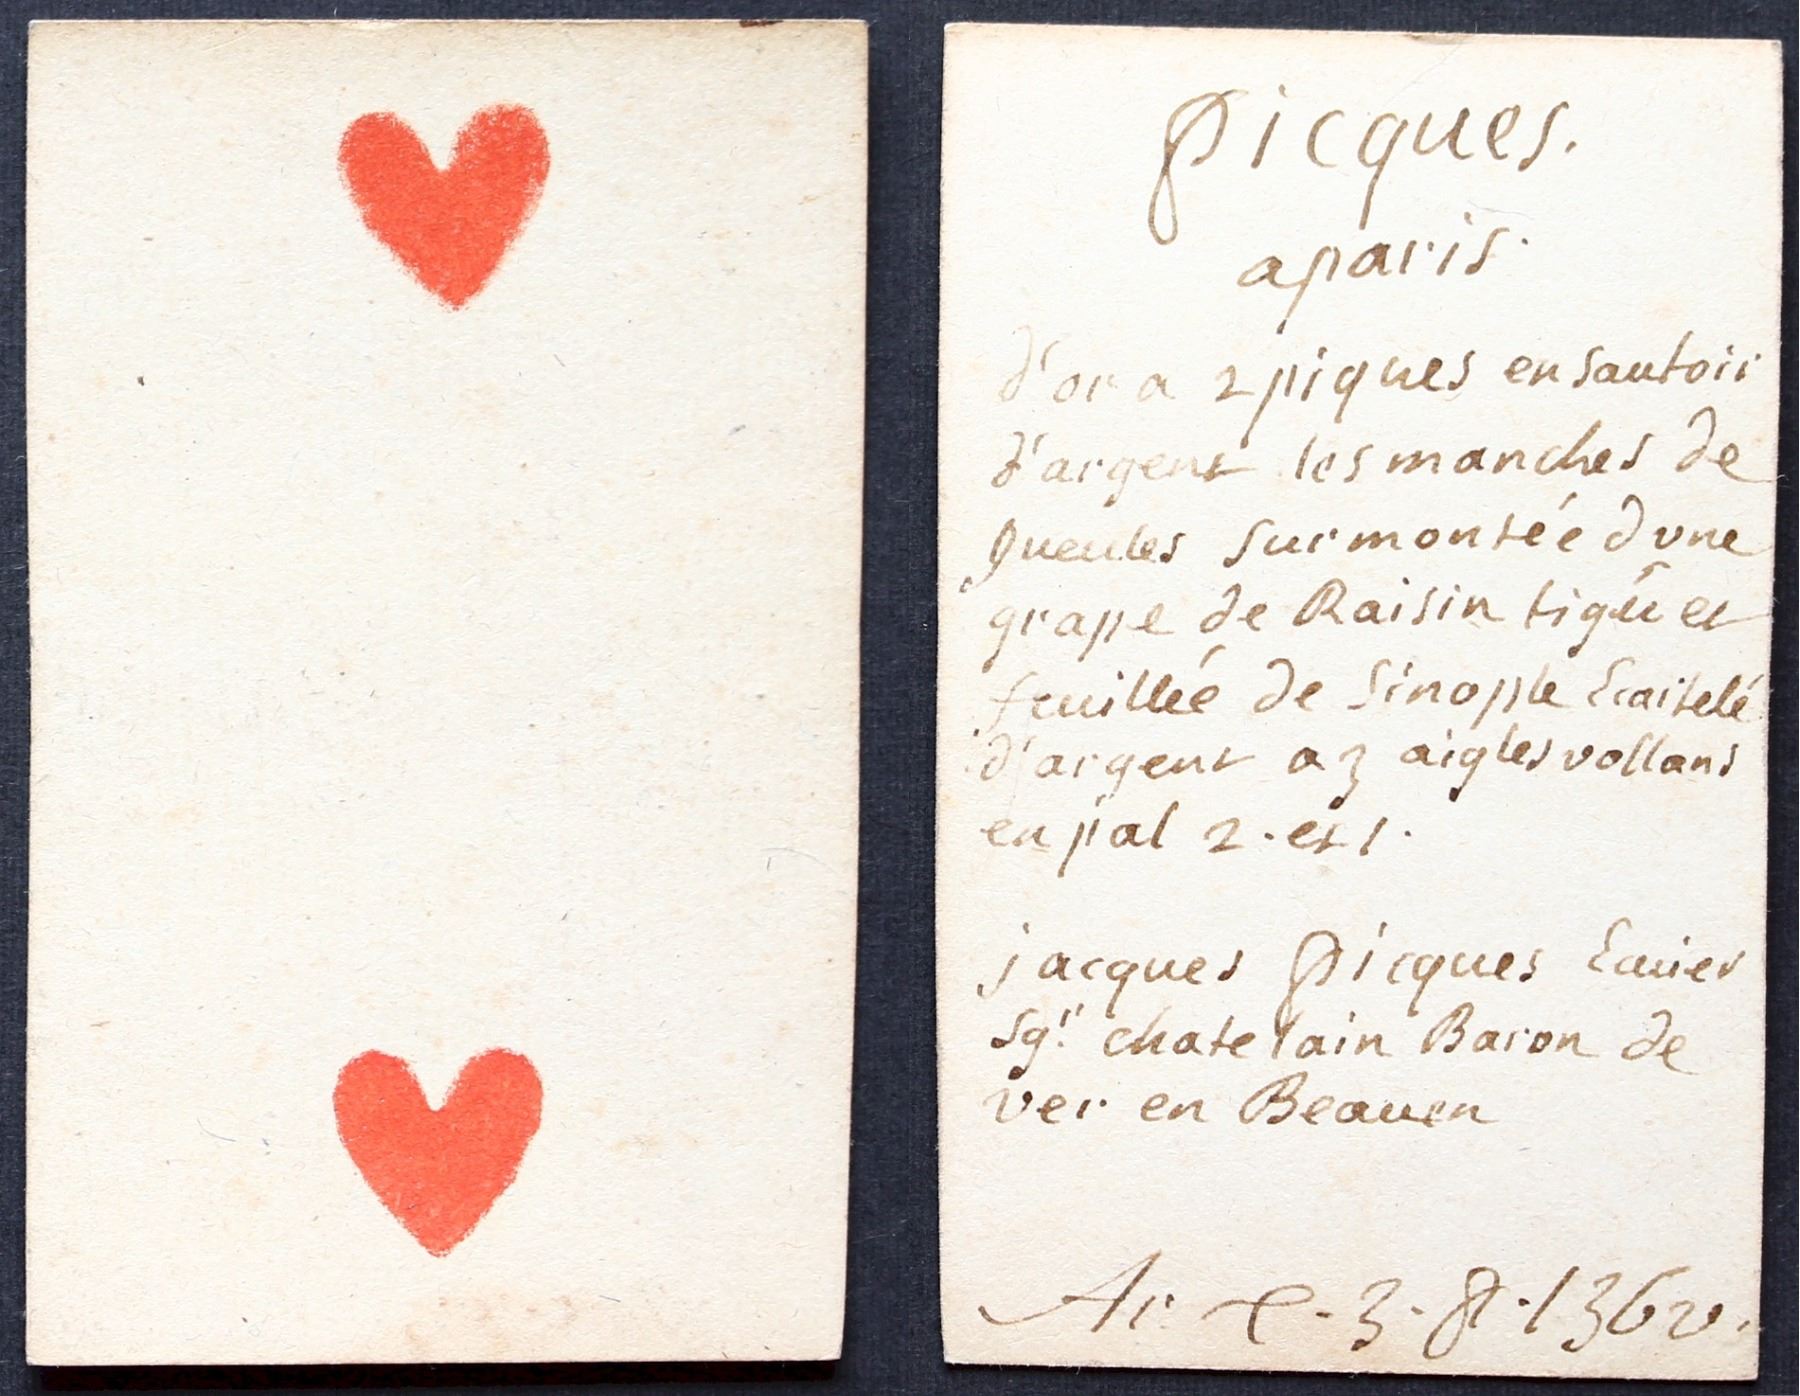 Picques.
a paris.
d'or a 2 piques en sautoir
d'argent les manches de
gueules surmontée d vne
grape de Raisin tigée et
feuilleé de sinople Ecartelé
d'argent a 3 aigles vollans
en pal 2. et 1.
jacques Picques Ecuier
sgr. chatelain Baron de
ver en Beauen
Ar 3. 136 v.